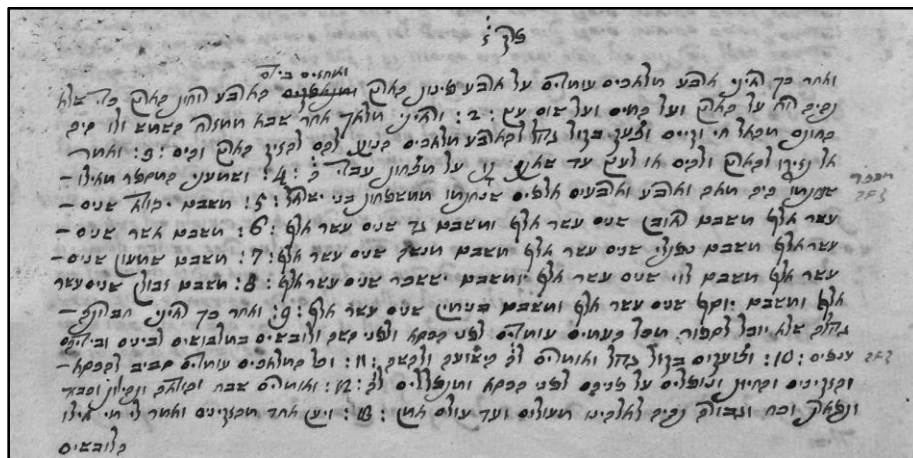 פרק ז
ואוחזים ביד
ואחר כך ראיתי ארבע מלאכים עומדים על ארבע פינות הארץ בארבע רוחות הארץ כדי שלא
הרוח על הארץ ועל הים ועל שום עץ :2: וראיתי מלאך אחר שבא ממזרח השמש ולו היה
החותם מהאל חי וקיים וצועק בקול גדול להארבע מלאכים להם להזיק הארץ והים :3: ואמר
אל תזיקו להארץ ולהים או לעץ עד על עבדי ה׳ :4: ושמעתי המספר מאילו -
שנחתמו היה מאה וארבע וארבעים אלפים שנחתמו ממשפחות בני ישראל :5: משבט יהודא שנים -
עשר אלף משבט ראובן שנים עשר אלף ומשבט גד שנים עשר אלף :6: משבט אשר שנים -
עשר אלף משבט נפתלי שנים עשר אלף משבט מנשה שנים עשר אלף :7: משבט שמעון שנים -
עשר אלף משבט לוי שנים עשר אלף ומשבט יששכר שנים עשר אלף :8: משבט זבולן שנים עשר
אלף ומשבט יוסף שנים עשר אלף ומשבט בנימין שנים עשר אלף :9: ואחר כך ראיתי חבורה -
גדולה שלא יוכל לספור מכל העמים עומדים לפני הכסא ולפני השה ולובשים במלבושים לבנים ובידיהם
ענפים :10: וצועקים בקול גדול ואומרים לה׳ הישועה ולהשה :11: וכל המלאכים עומדים סביב להכסא -
והזקנים והחיות ונופלים על פניהם לפני הכסא ומתפללים לה׳ :12: ואומרים שבח
וכח וגבורה לאלהינו מעולם ועד עולם אמן :13: ויען אחד מהזקנים ואמר לי מי אילו
הלובשים